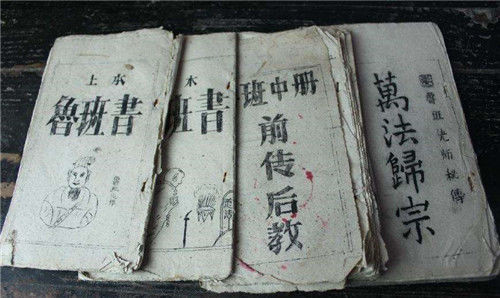 上本
魯班書
本
班書
班中册
前传后教
萬法歸宗
魯祖先师秘傳